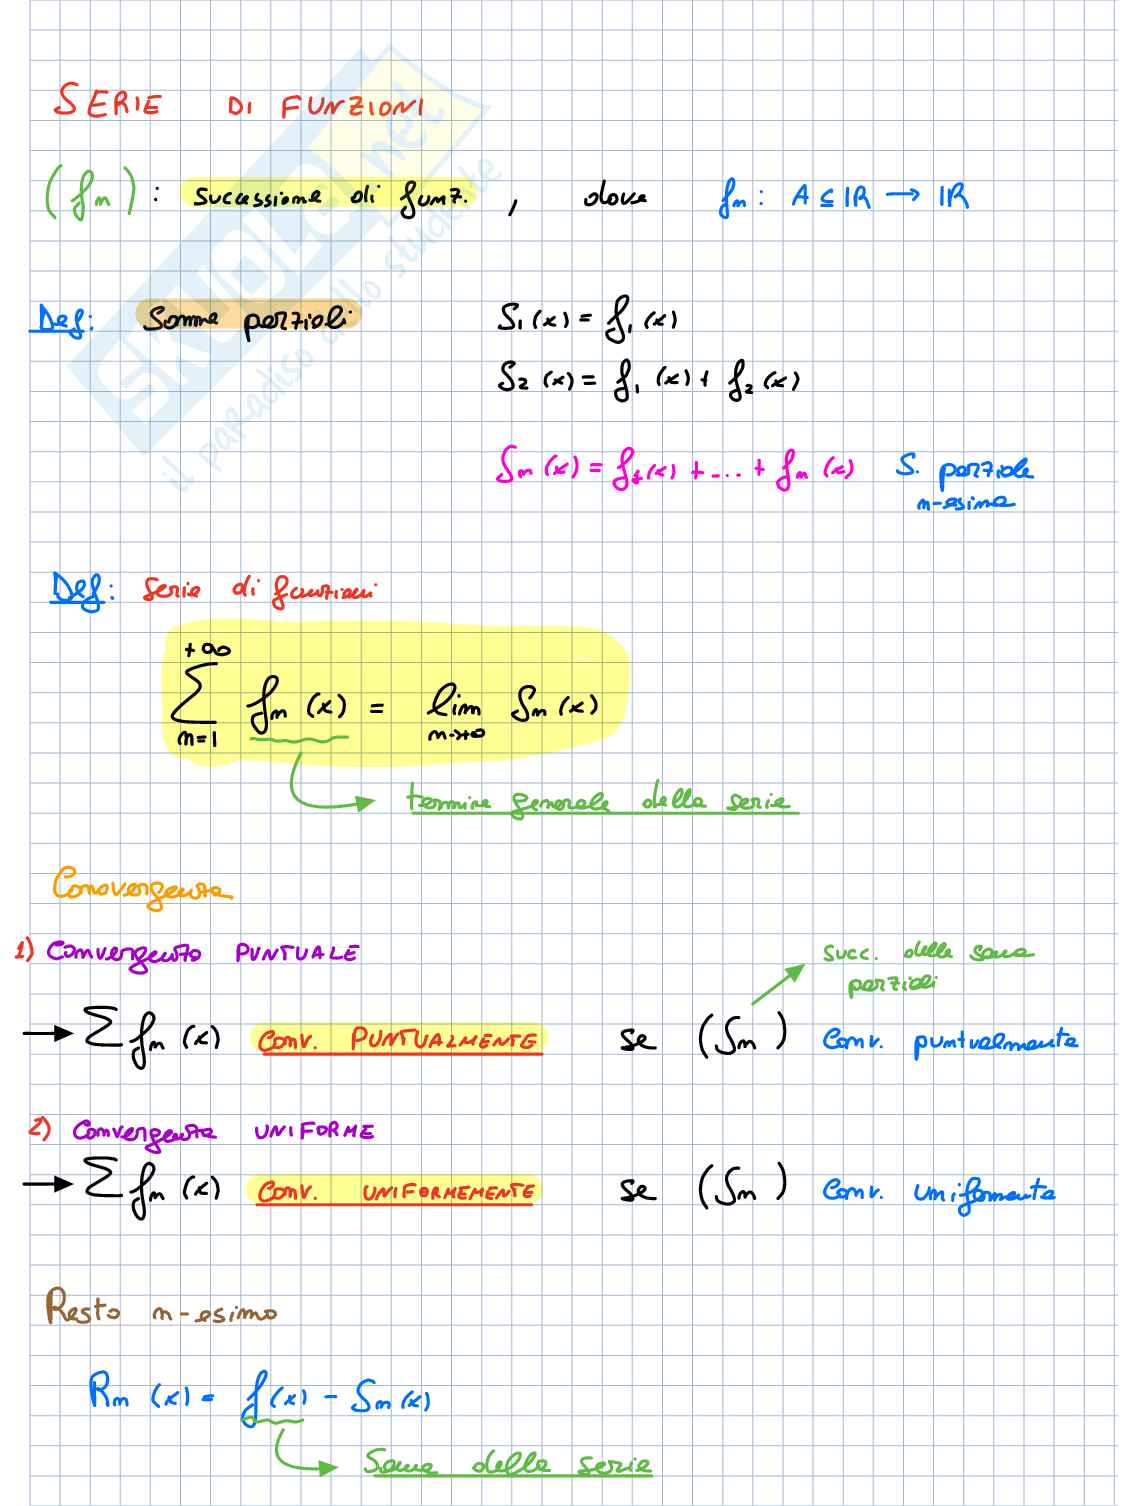 SERIE DI FUNZIONI
(fn) : successione di funz. , dove fn : A ⊆ IR → IR
Def: Somme parziali S₁(x) = f₁(x)
S₂(x) = f₁(x) + f₂(x)
Sn(x) = f₁(x) + ... + fn(x) S. parziale
n-esima
Def: Serie di funzioni
+∞
∑ fn(x) = lim Sn(x)
n=1 n→+∞
termine generale della serie
Convergenza
1) Convergenza PUNTUALE
succ. delle somme
parziali
→ ∑ fn(x) Conv. PUNTUALMENTE se (Sn) Conv. puntualmente
2) Convergenza UNIFORME
→ ∑ fn(x) Conv. UNIFORMEMENTE se (Sn) Conv. uniformemente
Resto n-esimo
Rn(x) = f(x) - Sn(x)
Somma della serie
SKUOLA.net
il paradiso dello studente